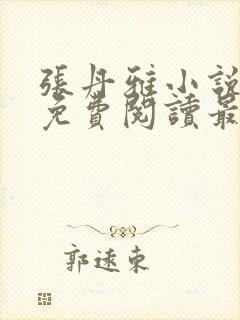 張丹雅小說
免費閱讀最
郭遠東